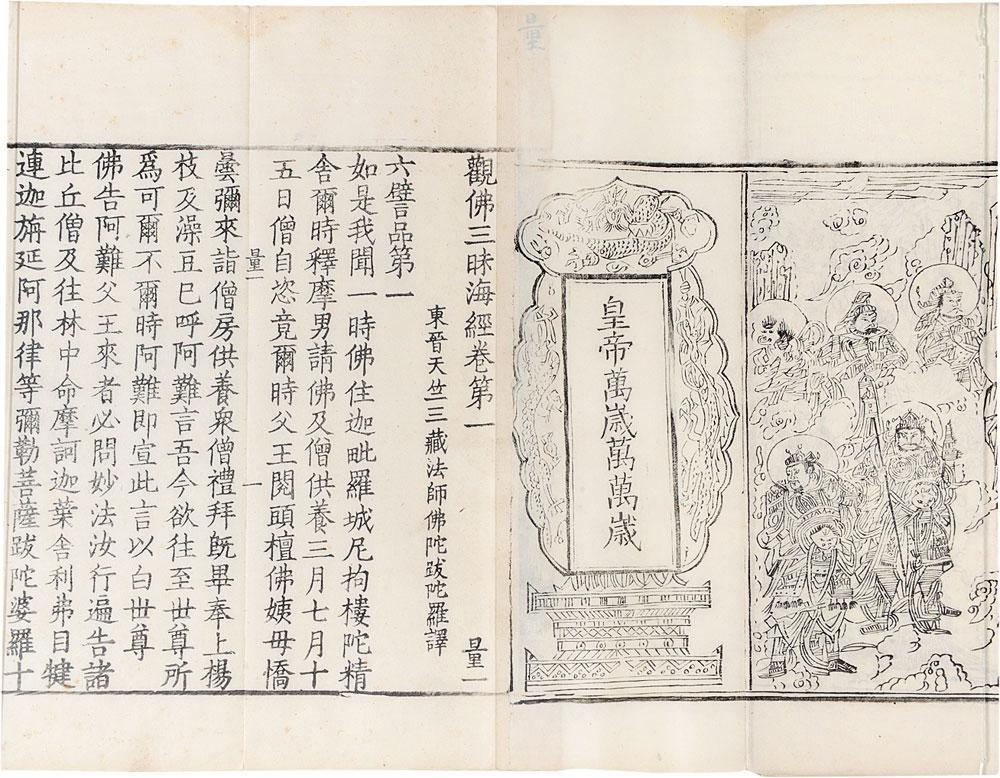 量
皇帝萬歲萬萬歲
觀佛三昧海經卷第一 量一
東晉天竺三藏法師佛陀跋陀羅譯
六譬品第一
如是我聞一時佛住迦毗羅城尼拘樓陀精
舍爾時釋摩男請佛及僧供養三月七月十
五日僧自恣竟爾時父王閱頭檀佛姨母憍
量一 一
曇彌來詣僧房供養衆僧禮拜旣畢奉上楊
枝及澡豆已呼阿難言吾今欲往至世尊所
爲可爾不爾時阿難即宣此言以白世尊
佛告阿難父王來者必問妙法汝行遍告諸
比丘僧及往林中命摩訶迦葉舍利弗目犍
連迦旃延阿那律等彌勒菩薩跋陀婆羅十